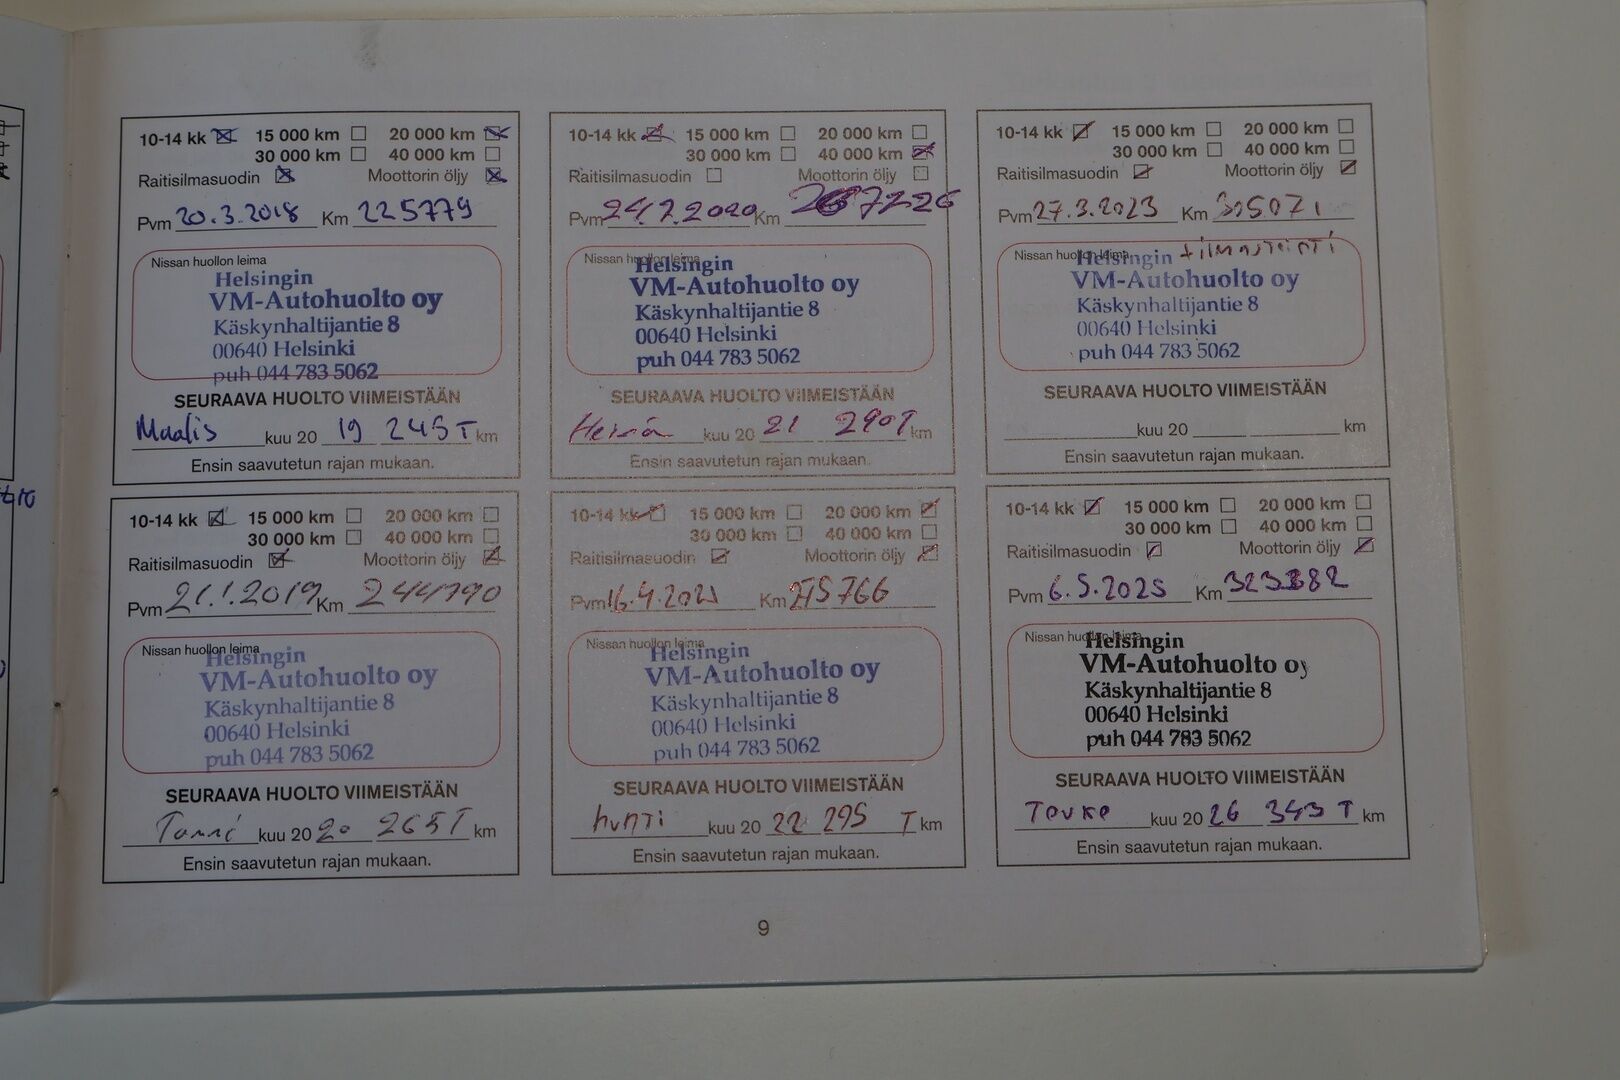 10-14 kk 15 000 km 20 000 km
30 000 km 40 000 km
Raitisilmasuodin Moottorin öljy
Pvm 20.3.2018 Km 225779
Nissan huollon leima
Helsingin
VM-Autohuolto oy
Käskynhaltijantie 8
00640 Helsinki
puh 044 783 5062
SEURAAVA HUOLTO VIIMEISTÄÄN
Maalis kuu 20 19 245 T km
Ensin saavutetun rajan mukaan.
10-14 kk 15 000 km 20 000 km
30 000 km 40 000 km
Raitisilmasuodin Moottorin öljy
Pvm 21.1.2019 Km 244790
Nissan huollon leima
Helsingin
VM-Autohuolto oy
Käskynhaltijantie 8
00640 Helsinki
puh 044 783 5062
SEURAAVA HUOLTO VIIMEISTÄÄN
Tammi kuu 20 20 265 T km
Ensin saavutetun rajan mukaan.
10-14 kk 15 000 km 20 000 km
30 000 km 40 000 km
Raitisilmasuodin Moottorin öljy
Pvm 24.7.2020 Km 267226
Nissan huollon leima
Helsingin
VM-Autohuolto oy
Käskynhaltijantie 8
00640 Helsinki
puh 044 783 5062
SEURAAVA HUOLTO VIIMEISTÄÄN
Heinä kuu 20 21 290T km
Ensin saavutetun rajan mukaan.
10-14 kk 15 000 km 20 000 km
30 000 km 40 000 km
Raitisilmasuodin Moottorin öljy
Pvm 16.4.2021 Km 275766
Nissan huollon leima
Helsingin
VM-Autohuolto oy
Käskynhaltijantie 8
00640 Helsinki
puh 044 783 5062
SEURAAVA HUOLTO VIIMEISTÄÄN
huhti kuu 20 22 295 T km
Ensin saavutetun rajan mukaan.
10-14 kk 15 000 km 20 000 km
30 000 km 40 000 km
Raitisilmasuodin Moottorin öljy
Pvm 27.3.2023 Km 305071
Nissan huollon leima
Helsingin
VM-Autohuolto oy
Käskynhaltijantie 8
00640 Helsinki
puh 044 783 5062
SEURAAVA HUOLTO VIIMEISTÄÄN
kuu 20 km
Ensin saavutetun rajan mukaan.
10-14 kk 15 000 km 20 000 km
30 000 km 40 000 km
Raitisilmasuodin Moottorin öljy
Pvm 6.5.2025 Km 323382
Nissan huollon leima
Helsingin
VM-Autohuolto oy
Käskynhaltijantie 8
00640 Helsinki
puh 044 783 5062
SEURAAVA HUOLTO VIIMEISTÄÄN
Touko kuu 20 26 343 T km
Ensin saavutetun rajan mukaan.
9